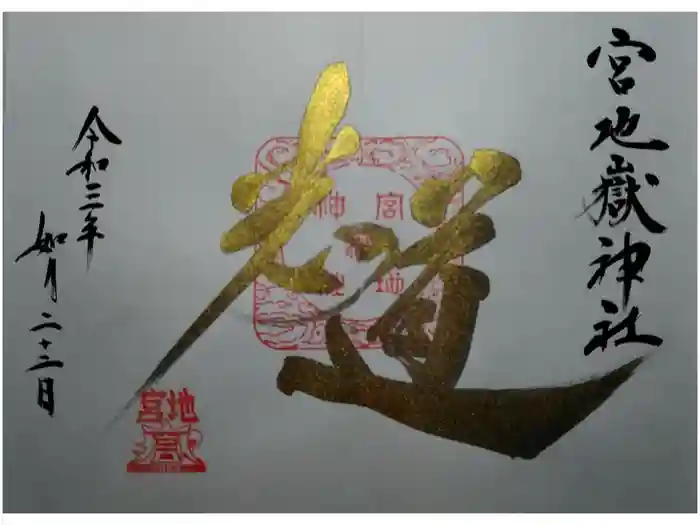 宮地嶽神社
光道
宮地嶽神社
令和三年
如月二十二日
宮地